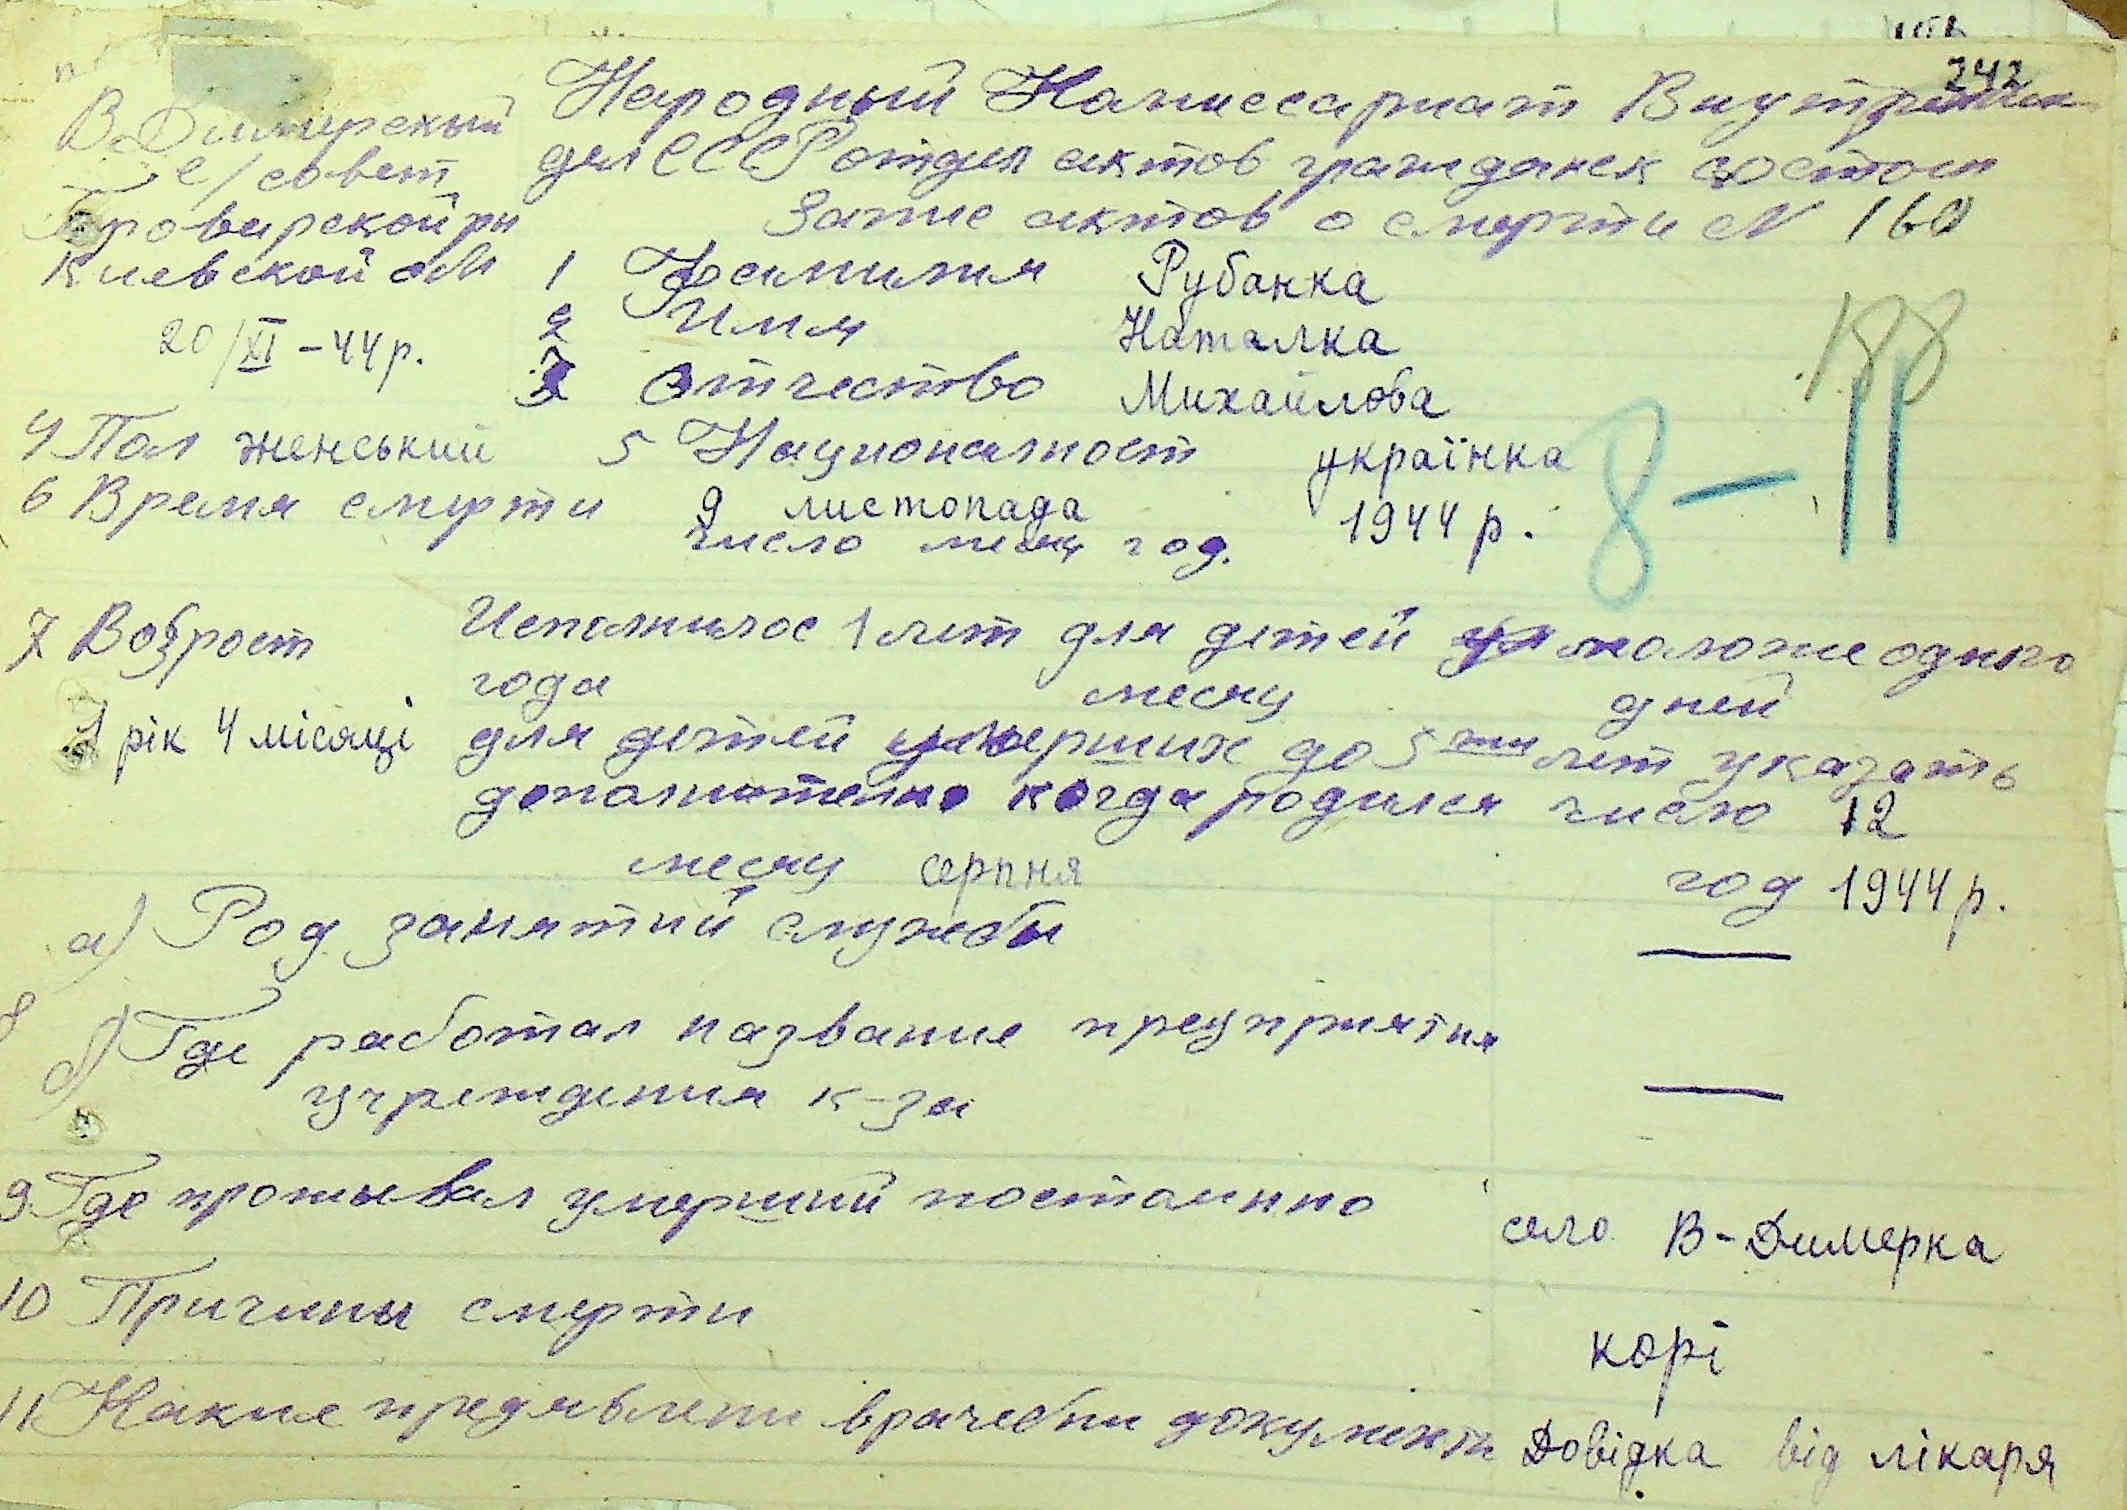 242
В Димерский
с/совет
Броварской рн
Киевской обл
20/XI - 44 р.
Народный Комиссариат Внутренних
дел СССР отдел актов гражданск состоян
Запис актов о смерти N 160
1 Фамилия Рубанка
2 Имя Наталка
3 Отчество Михайлова
188
4 Пол женський 5 Националност українка
8 - 11
6 Время смерти 9 листопада 1944 р.
число месяц год.
7 Возрост Исполнилос 1 лет для детей моложе одного
года месяц дней
1 рік 4 місяці для детей умерших до 5ти лет указать
дополнително когда родился число 12
месяц серпня год 1944 р.
а) Род занятий службы —
8
б) Где работал название предприятия
учреждения к-за —
9 Где проживал умерший постоянно село В-Димерка
10 Причины смерти корі
11 Какие предявлени врачебни документи Довідка від лікаря